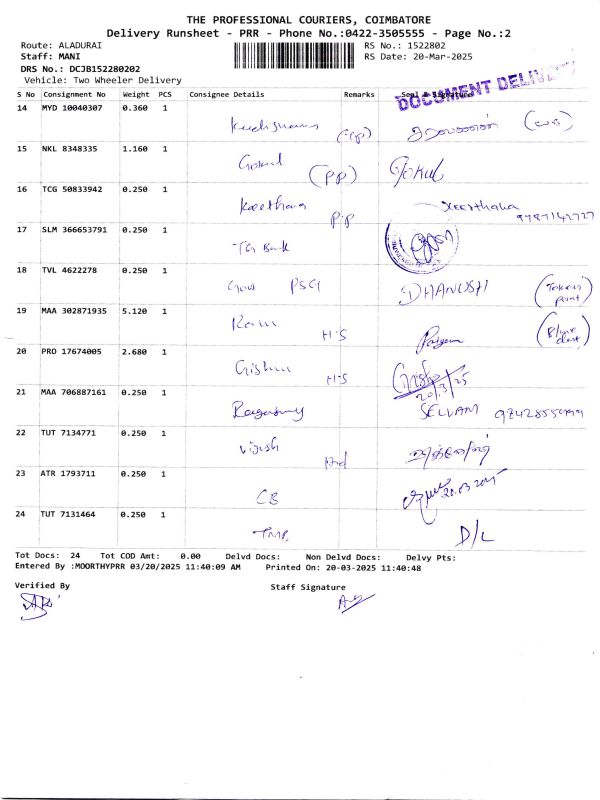 THE PROFESSIONAL COURIERS, COIMBATORE
Delivery Runsheet - PRR - Phone No.:0422-3505555 - Page No.:2
Route: ALADURAI RS No.: 1522802
Staff: MANI RS Date: 20-Mar-2025
DRS No.: DCJB152280202
Vehicle: Two Wheeler Delivery
DOCUMENT DELIVE
S No Consignment No Weight PCS Consignee Details Remarks Seal & Signature
14 MYD 10040307 0.360 1
15 NKL 8348335 1.160 1 Gokul (PP) Gokul
16 TCG 50833942 0.250 1 Keethana P.P Keerthana
17 SLM 366653791 0.250 1 Bank
18 TVL 4622278 0.250 1 PSG DHANUSH
19 MAA 302871935 5.120 1 Ram H-S
20 PRO 17674005 2.680 1 H-S 20/3/25
21 MAA 706887161 0.250 1 SELVAM
22 TUT 7134771 0.250 1
23 ATR 1793711 0.250 1 CB 20.03.2025
24 TUT 7131464 0.250 1 TMB D/L
Tot Docs: 24 Tot COD Amt: 0.00 Delvd Docs: Non Delvd Docs: Delvy Pts:
Entered By :MOORTHYPRR 03/20/2025 11:40:09 AM Printed On: 20-03-2025 11:40:48
Verified By Staff Signature